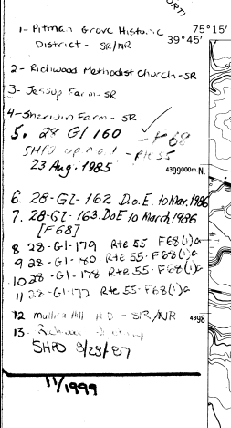 ORT!
75°15'
1- Pitman Grove Historic
District - SR/NR
39°45'
2- Richwood Methodist Church - SR
3- Jessup Farm - SR
4- Sheridan Farm - SR
5. 28 Gl 160 F68
SHPO Rte 55
23 Aug. 1985
4399000m N.
6. 28-Gl-162 D.o.E. to Mar, 1986
7. 28-Gl-163 DoE to March, 1986
[F68]
8 28-Gl-179 Rte 55 F68(1)G
9 28-Gl- Rte 55-F68(1)G
10 28-Gl-178 Rte 55-F68(1)G
11 28-Gl-177 Rte 55-F68(1)G
12 Mullica Hill H D - SR/NR
13-
SHPO 9/23/87
11/1999